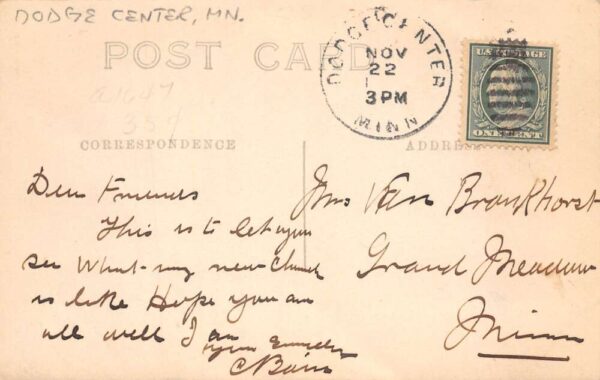 DODGE CENTER, MN.
POST CARD
DODGE CENTER
NOV
22
3 PM
MINN
U.S. POSTAGE
ONE CENT
CORRESPONDENCE
ADDRESS
Dear Friends
This is to let you
see What my new Church
is like Hope you are
all well I am
your
C Bain
Mrs Van Bronkhorst
Grand Meadow
Minn